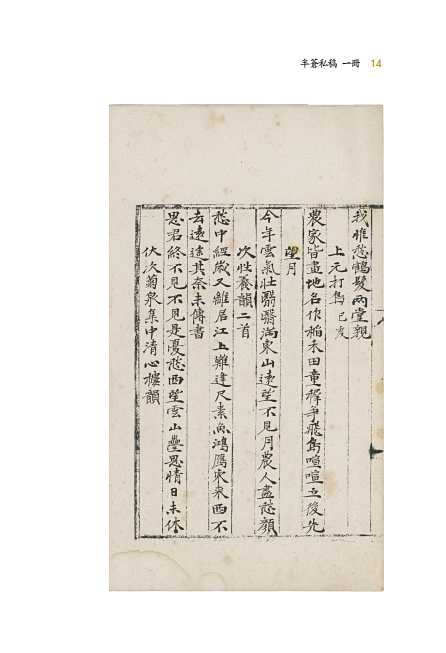 半蒼私稿 一冊 14
我惟愁鶴髮兩堂親
上元打鳥 己亥
農家皆畫地名作稻禾田童穉爭飛鳥喧喧立後先
望月
今年雲氣壯翳翳滿東山遠望不見月農人盡愁顏
次性養韻二首
愁中經歲又離居江上難逢尺素魚鴻鴈東來西不
去遠途其奈未傳書
思君終不見不見是憂愁西望雲山疊思情日未休
伏次菊泉集中清心樓韻